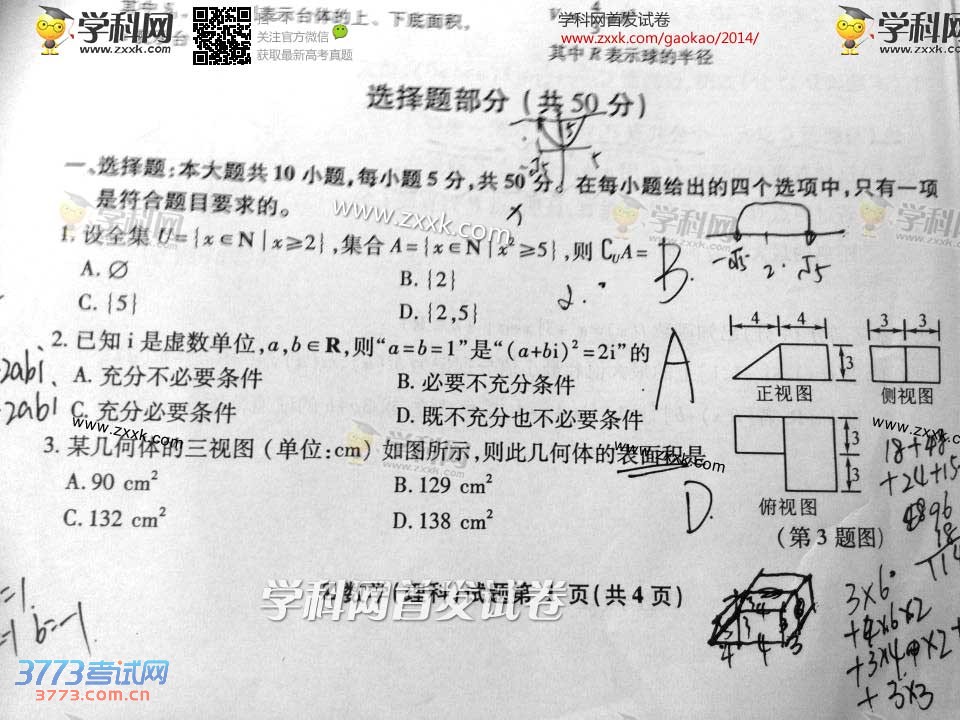 其中S 表示台体的上、下底面积,
学科网
www.zxxk.com
关注官方微信
获取最新高考真题
学科网首发试卷
www.zxxk.com/gaokao/2014/
其中 R 表示球的半径
学科网
www.zxxk.com
选择题部分 (共 50 分)
一、选择题:本大题共 10 小题,每小题 5 分,共 50 分。在每小题给出的四个选项中,只有一项
是符合题目要求的。
1. 设全集 U={x∈N|x≥2},集合 A={x∈N|x²≥5},则 ∁UA= B.
-√5 2 √5
A. ∅
B. {2}
C. {5}
D. {2,5}
2. 已知 i 是虚数单位,a,b∈R,则“a=b=1”是“(a+bi)²=2i”的 A
A. 充分不必要条件
B. 必要不充分条件
C. 充分必要条件
D. 既不充分也不必要条件
4 4
3
正视图
3 3
侧视图
3. 某几何体的三视图 (单位:cm) 如图所示,则此几何体的表面积是 D.
A. 90 cm²
B. 129 cm²
C. 132 cm²
D. 138 cm²
3
3
俯视图
(第 3 题图)
18+48
+24+15
3×6
+4×6×2
+3×3
b=-1
学科网首发试卷
数学(理科)试题第 页(共 4 页)
3773考试网
3773.com.cn